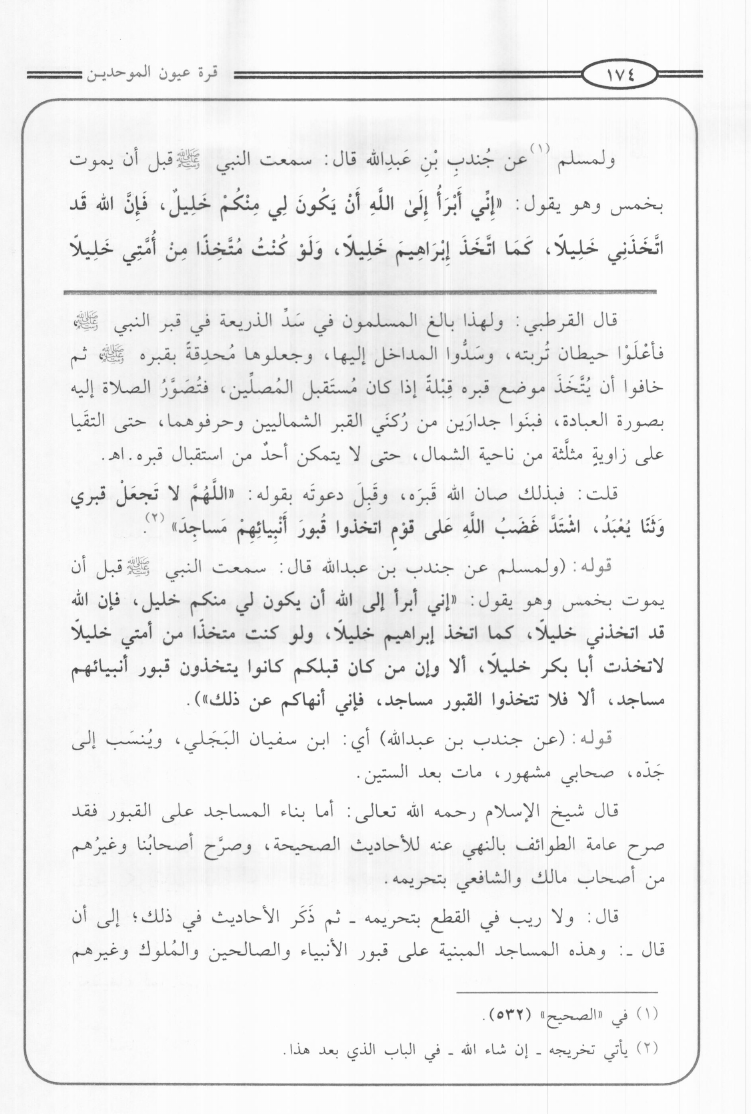 ١٧٤ قرة عيون الموحدين
ولمسلم (١) عن جُندبِ بْنِ عَبدِالله قال: سمعت النبي ﷺ قبل أن يموت
بخمس وهو يقول: «إِنِّي أَبْرَأُ إِلَىٰ اللَّهِ أَنْ يَكُونَ لِي مِنْكُمْ خَلِيلٌ، فَإِنَّ الله قَد
اتَّخَذَنِي خَلِيلًا، كَمَا اتَّخَذَ إِبْرَاهِيمَ خَلِيلًا، وَلَوْ كُنْتُ مُتَّخِذًا مِنْ أُمَّتِي خَلِيلًا
قال القرطبي: ولهذا بالغ المسلمون في سَدِّ الذريعة في قبر النبي ﷺ،
فأعْلَوْا حيطان تُربته، وسَدُّوا المداخل إليها، وجعلوها مُحدِقةً بقبره ﷺ، ثم
خافوا أن يُتَّخَذَ موضع قبره قِبْلةً إذا كان مُستَقبل المُصلِّين، فتُصَوَّرُ الصلاة إليه
بصورة العبادة، فبنَوا جدارَين من رُكنَي القبر الشماليين وحرفوهما، حتى التقَيا
على زاويةٍ مثلَّثة من ناحية الشمال، حتى لا يتمكن أحدٌ من استقبال قبره.اهـ.
قلت: فبذلك صان الله قَبرَه، وقَبِلَ دعوتَه بقوله: «اللَّهُمَّ لا تَجعَلْ قبري
وَثَنًا يُعْبَدُ، اشْتَدَّ غَضَبُ اللَّهِ عَلى قوْمٍ اتخذوا قُبورَ أَنْبِيائِهِمْ مَساجِدَ» (٢).
قوله: (ولمسلم عن جندب بن عبدالله قال: سمعت النبي ﷺ قبل أن
يموت بخمس وهو يقول: «إني أبرأ إلى الله أن يكون لي منكم خليل، فإن الله
قد اتخذني خليلًا، كما اتخذ إبراهيم خليلًا، ولو كنت متخذًا من أمتي خليلًا
لاتخذت أبا بكر خليلًا، ألا وإن من كان قبلكم كانوا يتخذون قبور أنبيائهم
مساجد، ألا فلا تتخذوا القبور مساجد، فإني أنهاكم عن ذلك»).
قوله: (عن جندب بن عبدالله) أي: ابن سفيان البَجَلي، ويُنسَب إلى
جَدّه، صحابي مشهور، مات بعد الستين.
قال شيخ الإسلام رحمه الله تعالى: أما بناء المساجد على القبور فقد
صرح عامة الطوائف بالنهي عنه للأحاديث الصحيحة، وصرَّح أصحابُنا وغيرُهم
من أصحاب مالك والشافعي بتحريمه.
قال: ولا ريب في القطع بتحريمه ـ ثم ذَكَر الأحاديث في ذلك؛ إلى أن
قال ـ: وهذه المساجد المبنية على قبور الأنبياء والصالحين والمُلوك وغيرهم
(١) في «الصحيح» (٥٣٢).
(٢) يأتي تخريجه ـ إن شاء الله ـ في الباب الذي بعد هذا.